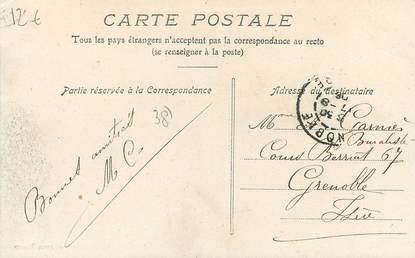 12 €
CARTE POSTALE
Tous les pays étrangers n'acceptent pas la correspondance au recto
(se renseigner à la poste)
Partie réservée à la Correspondance
Adresse du destinataire
38)
Bonnes amitiés
M C.
Mme Garnier
Buraliste
Cours Berriat 67
Grenoble
Isère